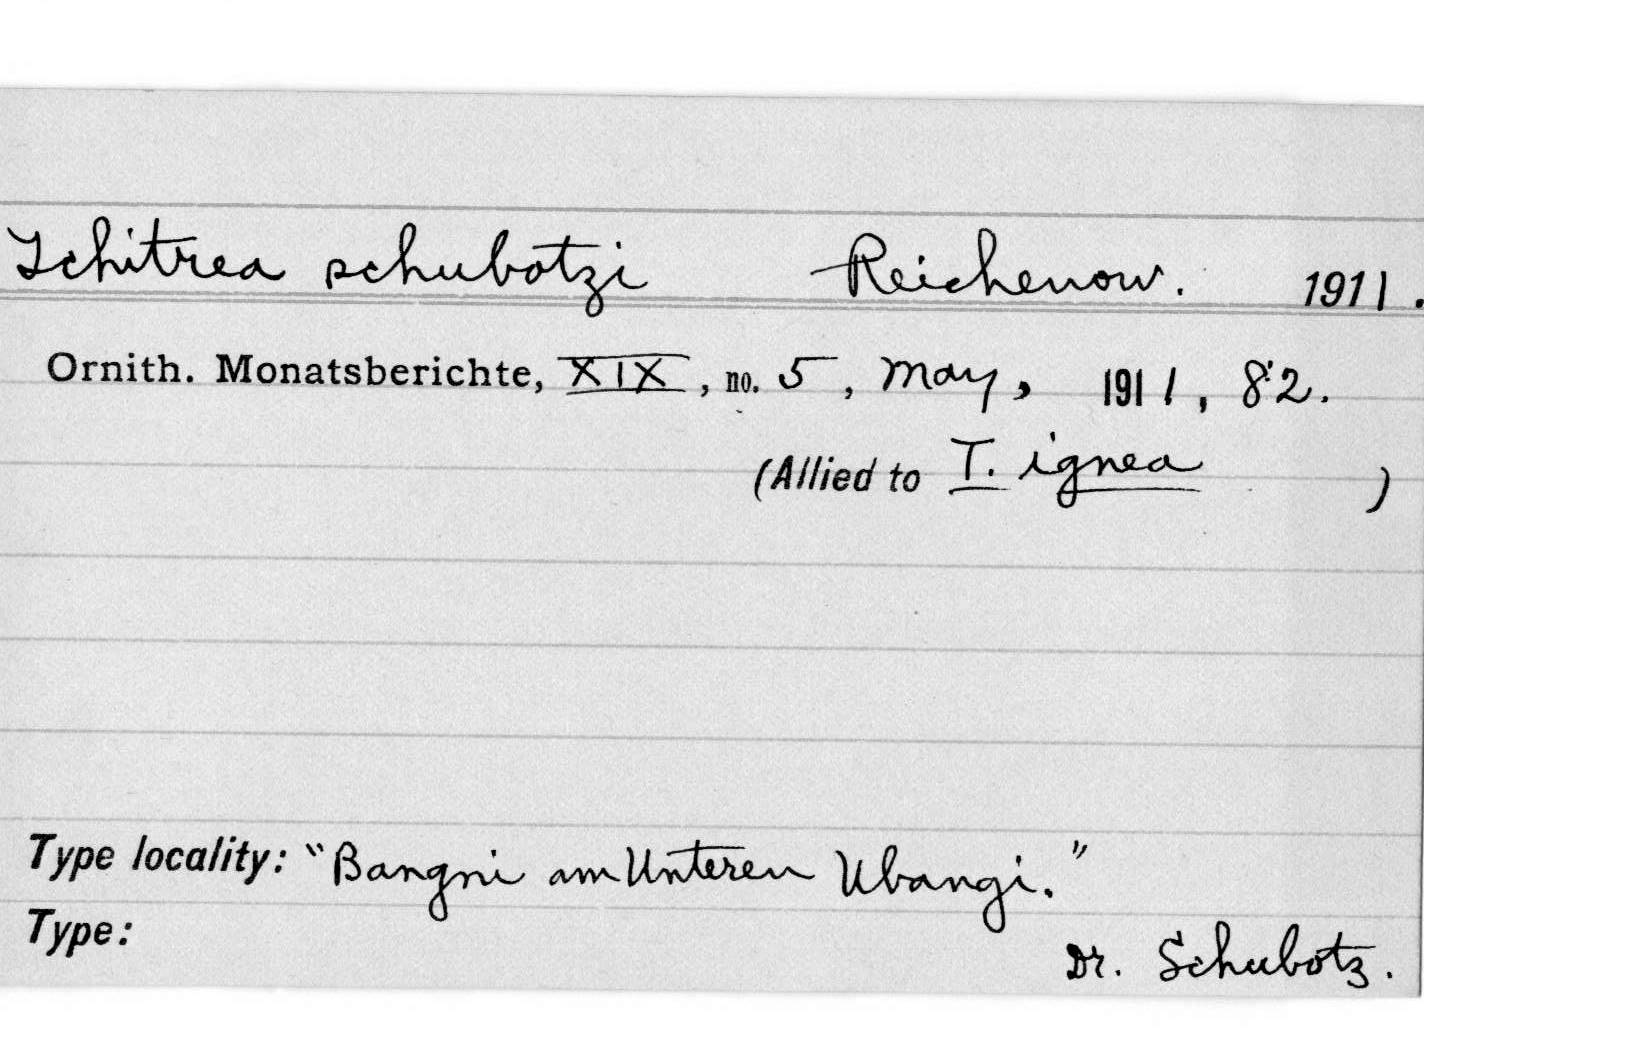 Tchitrea schubotzi Reichenow. 1911.
Ornith. Monatsberichte, XIX, no. 5, May, 1911, 82.
(Allied to T. ignea )
Type locality: "Bangui am Unteren Ubangi."
Type:
Dr. Schubotz.